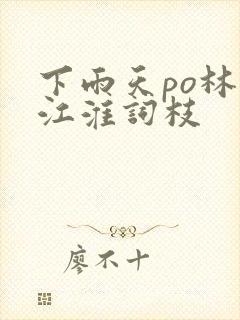 下雨天po林
江淮詞枝
廖不十